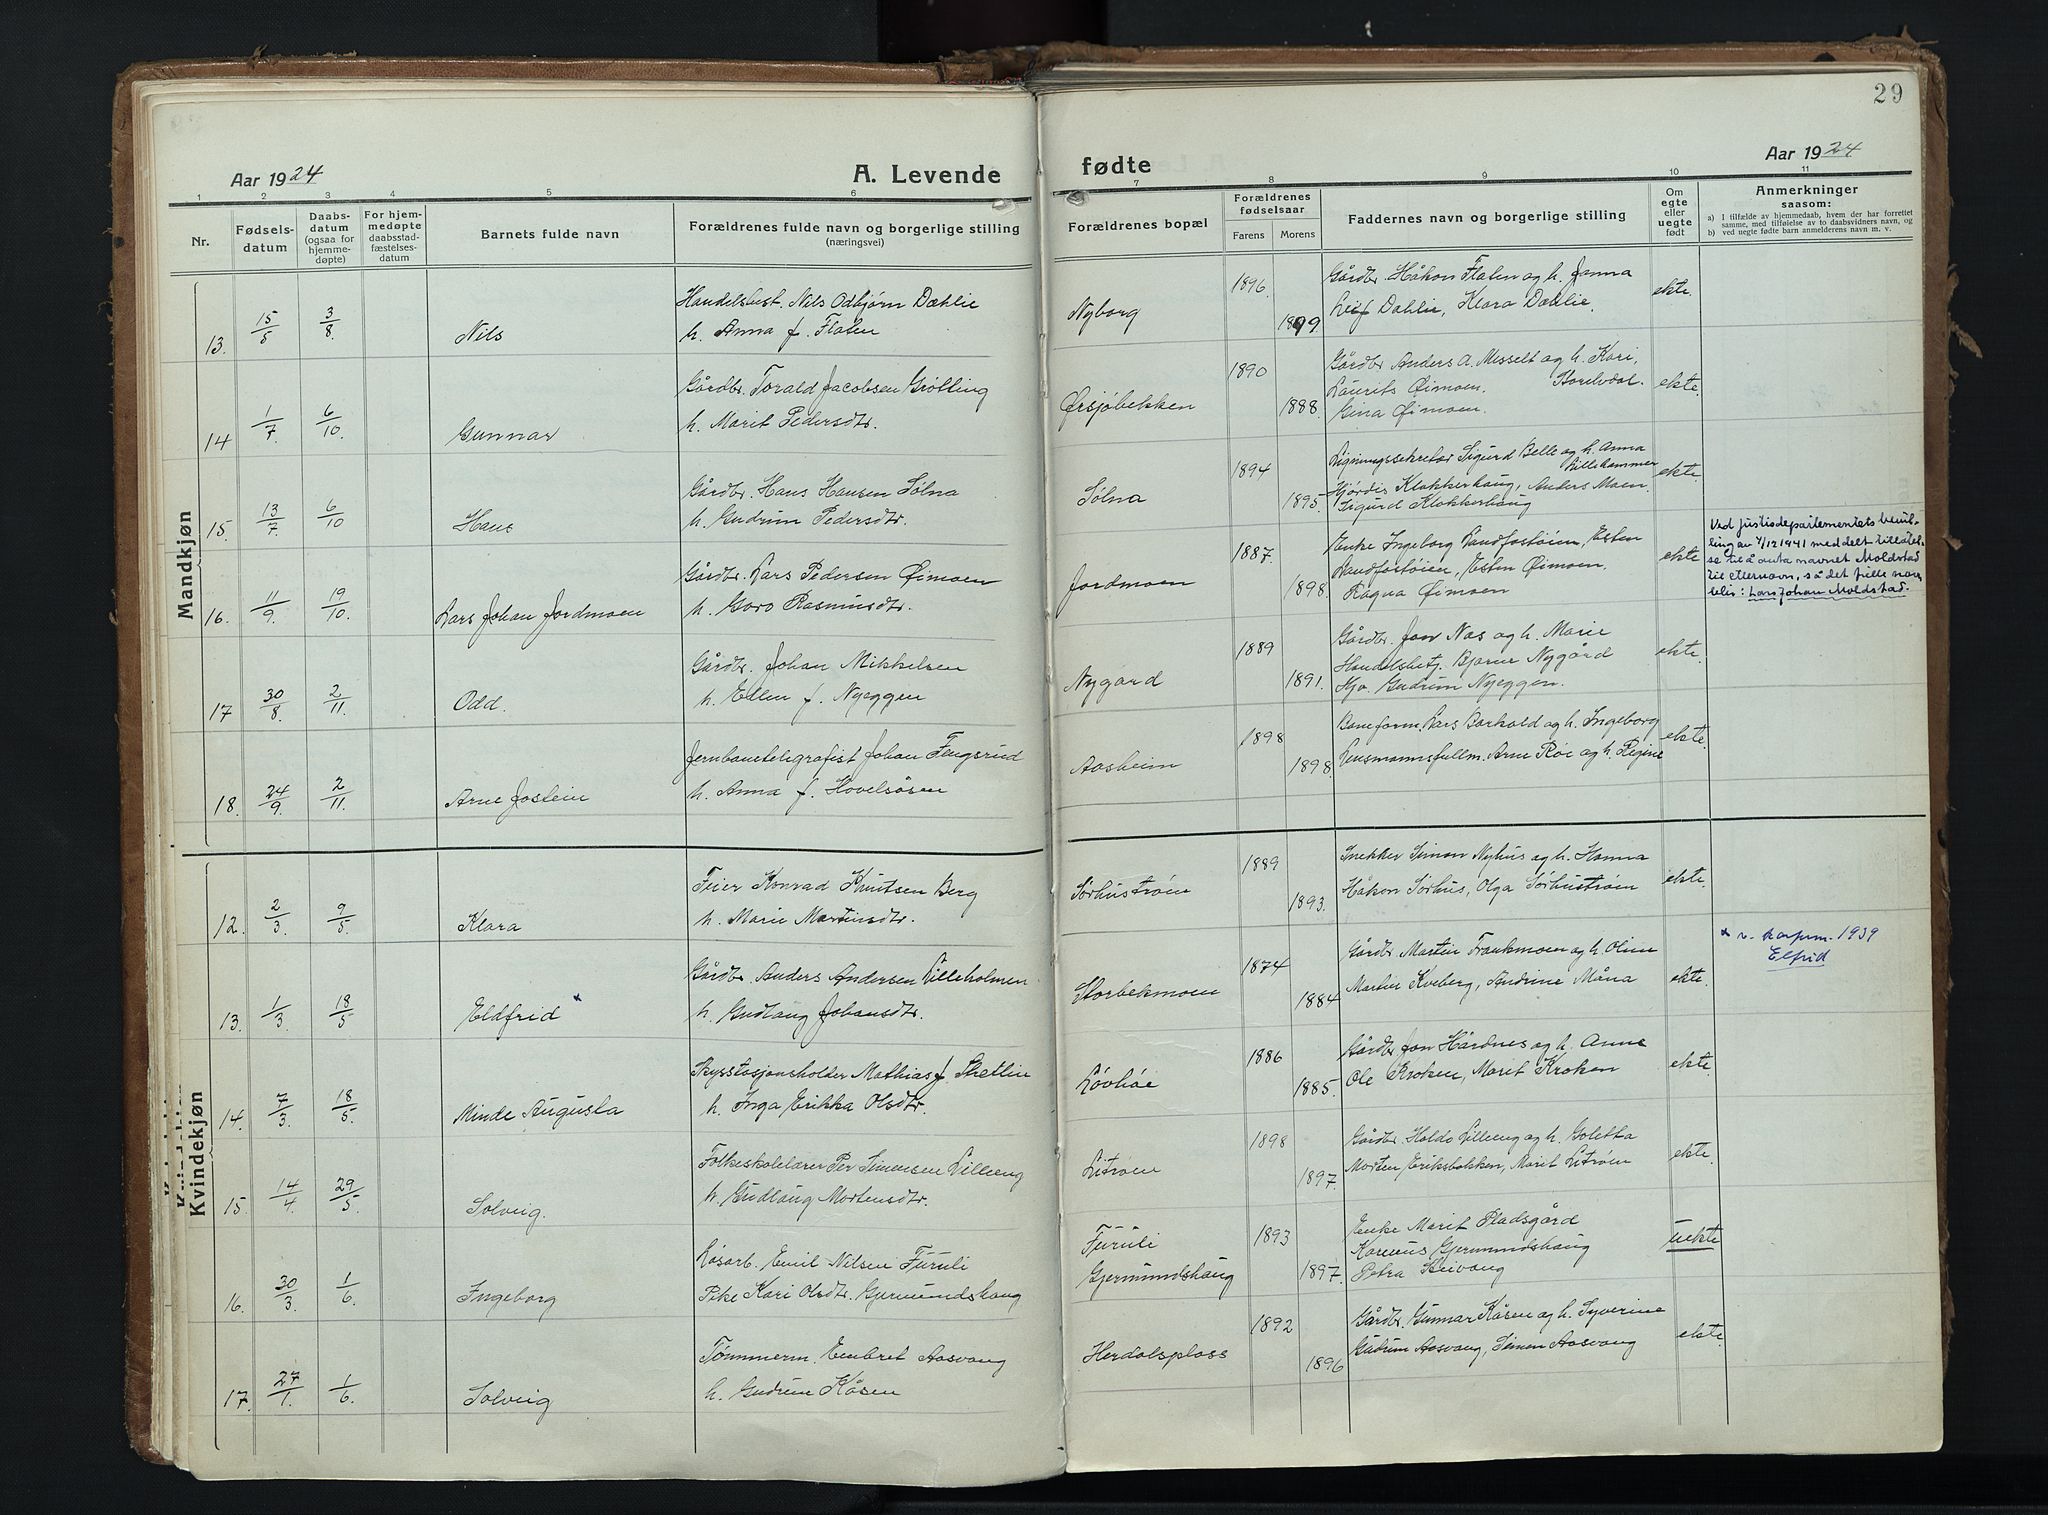 29
Aar 1924
A. Levende fødte
Aar 1924
1 2 3 4 5 6 7 8 9 10 11
Nr.
Fødselsdatum
Daabsdatum (ogsaa for hjemmedøpte)
For hjemmedøpte daabsstadfæstelsesdatum
Barnets fulde navn
Forældrenes fulde navn og borgerlige stilling (næringsvei)
Forældrenes bopæl
Forældrenes fødselsaar
Farens Morens
Faddernes navn og borgerlige stilling
Om egte eller uegte født
Anmerkninger saasom:
a) I tilfælde av hjemmedaab, hvem der har forrettet samme, med tilføielse av to daabsvidners navn, og
b) ved uegte fødte barn anmelderens navn m. v.
Mandkjøn
13. 15/5 3/8 Nils
Handelsbest. Nils Odbjørn Dæhlie
h. Anna f. Flaten
Nyborg 1896. 1899.
Gårdbr. Håkon Flaten og h. Janna
Leif Dahlie, Klara Dæhlie.
ekte.
14 1/7 6/10. Gunnar
Gårdbr. Torald Jacobsen Grøtting
h. Marit Pedersdtr.
Ørsjøbekken 1890 1888.
Gårdbr Anders A. Messelt og h. Kari,
Laurits Øimoen.
Gina Øimoen.
ekte.
15. 13/7 6/10 Hans
Gårdbr. Hans Hansen Sølna
h. Gudrun Pedersdtr.
Sølna 1894 1895
Ligningssekretær Sigurd Belle og h. Anna
Lillehammer
Hjørdis Klokkerhaug, Anders Moen
Sigurd Klokkerhaug
ekte
16. 11/9. 19/10. Lars Johan Jordmoen
Gårdbr. Lars Pedersen Øimoen
h. Goro Rasmusdtr.
Jordmoen 1887. 1898.
Enke Ingeborg Landfostøien, Esten
Landfostøien, Esten Øimoen.
Ragna Øimoen
ekte
Ved Justisdepartementets bevil-
ling av 4/12 1941 meddelt tillatel-
se til å anta navnet Moldstad
til etternavn, så det fulle navn
blir: Lars Johan Moldstad.
17 30/8. 2/11. Odd.
Gårdbr. Johan Mikkelsen
h. Ellen f. Nyeggen
Nygard 1889 1891.
Gårdbr. Jon Nas og h. Marie
Handelsbetj. Bjarne Nygård
Gudrun Nyeggen.
ekte.
18. 24/9. 2/11. Arne Jostein
Jernbanetelegrafist Johan Fengsrud
h. Anna f. Hovelsåsen
Aasheim 1898 1898.
Baneform. Lars Barkald og h. Ingeborg
Lensmannsfullm. Arne Røe og h. Regine
ekte.
Kvindekjøn
12. 2/3. 9/5. Klara
Feier Konrad Knutsen Berg
h. Marie Martinsdtr.
Sørhustrøen 1889 1893.
Snekker Simon Nyhus og h. Hanna
Håkon Sørhus, Olga Sørhustrøen
ekte.
13. 1/3. 18/5 Eldfrid x
Gårdbr. Anders Andersen Lilleholmen
h. Gudlaug Johansdtr.
Storbekmoen 1874 1884
Gårdbr. Martin Trankmoen og h. Oline
Martin Kveberg, Andrine Måna
ekte.
x 1939
Elfrid
14. 7/3. 18/5. Minde Augusta
Skysstasjonsholder Mathias J. Stetlin
h. Inga Erikka Olsdtr.
Løvhøe 1886 1885.
Gårdbr Jon Hårdnes og h. Anne
Ole Kroken, Marit Kroken
ekte.
15. 14/4. 29/5. Solveig.
Folkeskolelærer Per Simensen Lilleeng
h. Gudlaug Mortensdtr.
Litrøen 1898 1897.
Gårdbr. Haldo Lilleeng og h. Goletta
Morten Eriksbakken, Marit Litrøen
ekte.
16. 30/3. 1/6. Ingeborg
Løsarb. Emil Nilsen Furuli
Pike Kari Olsdtr. Gjermundshaug
Furuli
Gjermundshaug 1893 1897.
Enke Marit Pladsgård
Karenus Gjermundshaug
Petra Steivang
uekte
17. 27/1. 1/6. Solveig
Tømmerm. Embret Aasvang
h. Gudrun Kåsen
Herdalsplass 1892 1896
Gårdbr. Gunnar Kåsen og h. Syverine
Gudrun Aasvang, Simen Aasvang
ekte.